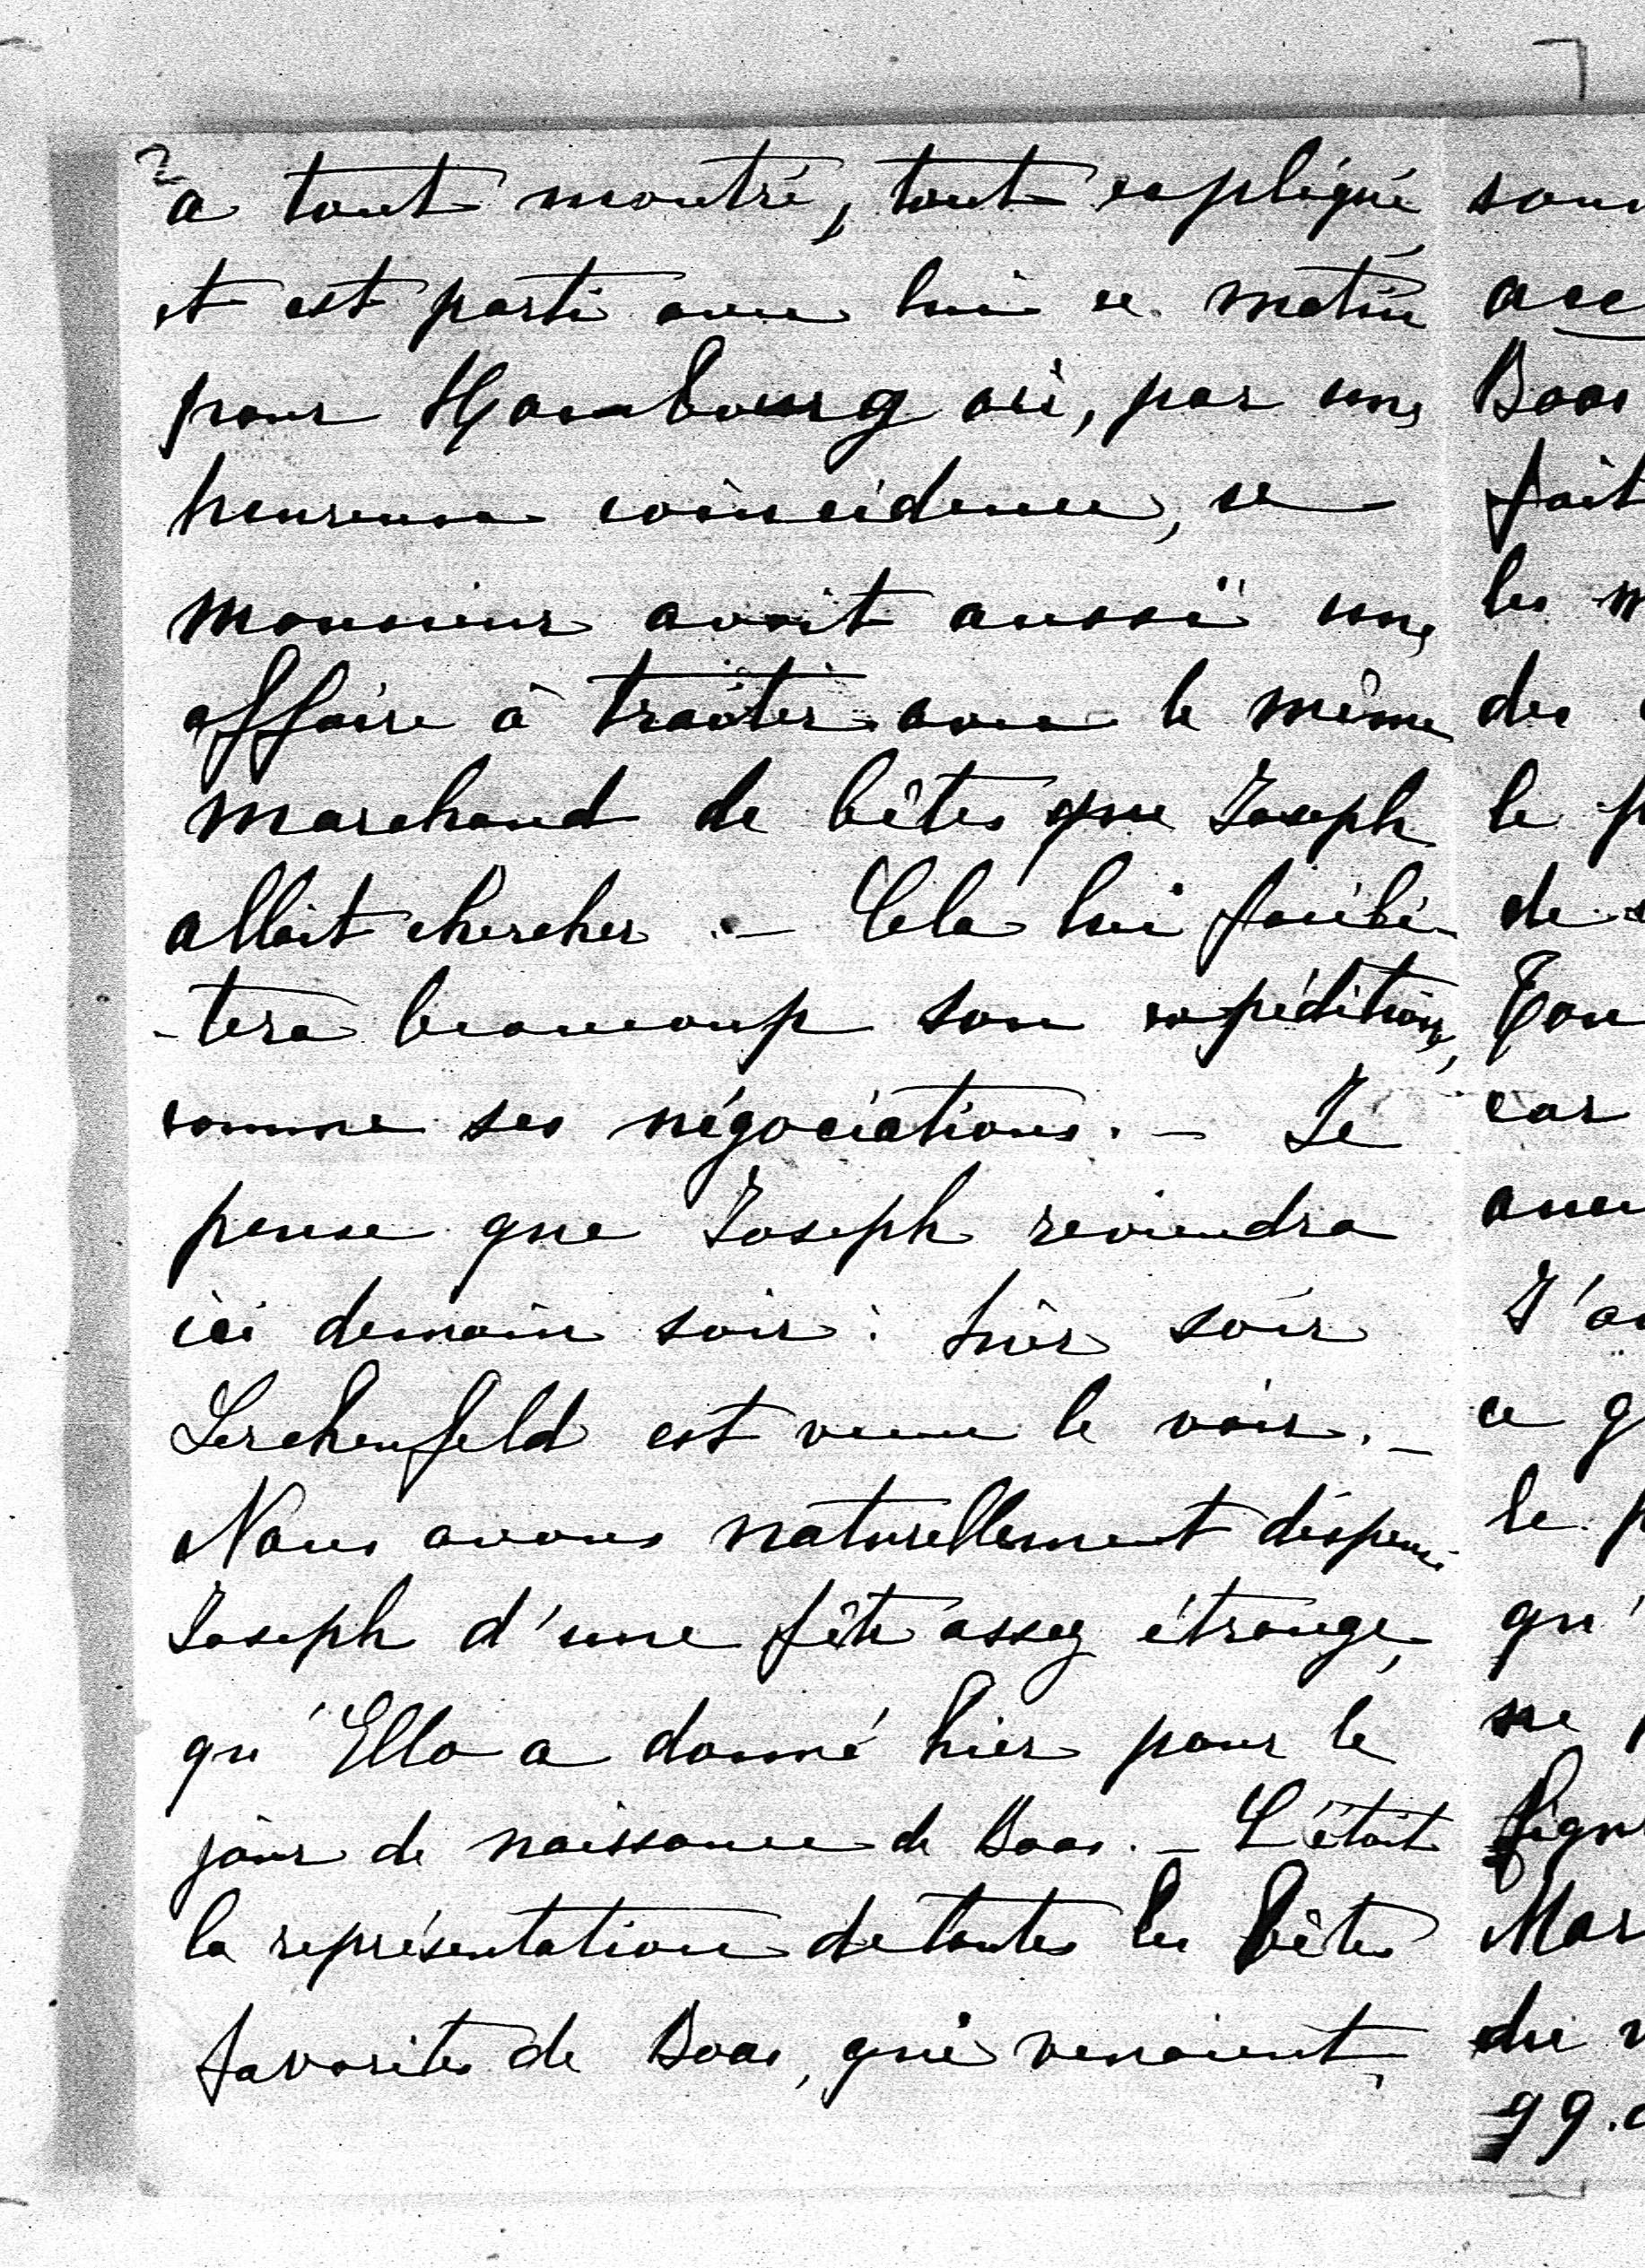 2
a tout montré, tout expliqué
et est parti avec lui ce matin
pour Hambourg où, par une
heureuse coincidence, ce
monsieur avait aussi une
affaire à traiter avec le même
marchand de bêtes que Joseph
allait chercher. — Cela lui facili-
-tera beaucoup son expédition,
comme ses négociations. — Je
pense que Joseph reviendra
ici demain soir : hier soir
Lerchenfeld est venu le voir. —
Nous avons naturellement dispensé
Joseph d'une fête assez étrange,
qu'Ella a donné hier pour le
jour de naissance de Boas. — C'était
la représentation de toutes les bêtes
favorites de Boas, qui venaient
sou
ave
Boas
fait
les m
des
le p
de s
Tou
car
aucu
J'a
ce q
le p
qu'
ne p
figu
Mar
du v
99.